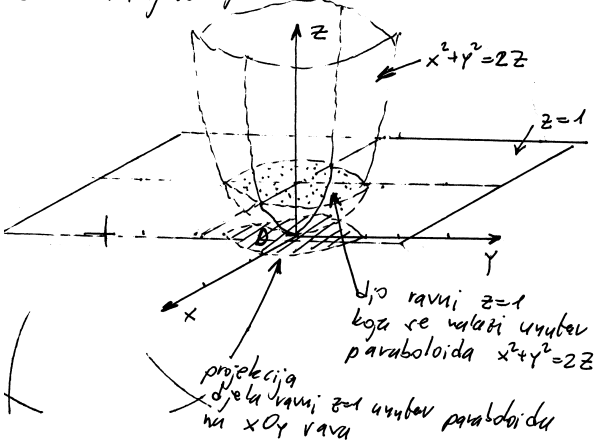 Z
x²+y²=2Z
z=1
D
Y
X
dio ravni z=1
koja se nalazi unutar
paraboloida x²+y²=2Z
projekcija
djela ravni z=1 unutar paraboloida
na xOy ravan